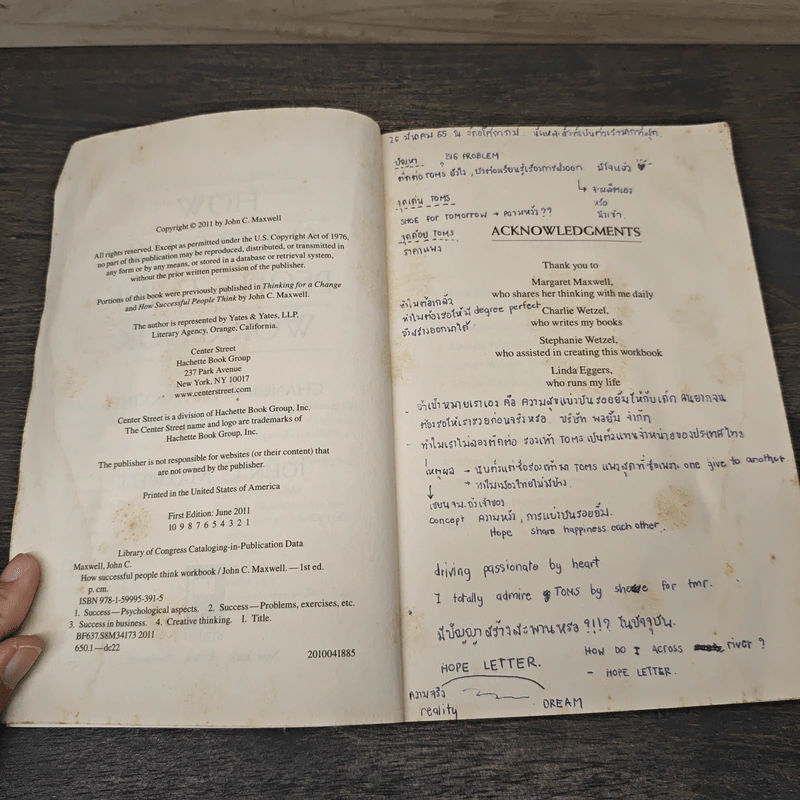 Copyright © 2011 by John C. Maxwell
All rights reserved. Except as permitted under the U.S. Copyright Act of 1976,
no part of this publication may be reproduced, distributed, or transmitted in
any form or by any means, or stored in a database or retrieval system,
without the prior written permission of the publisher.
Portions of this book were previously published in Thinking for a Change
and How Successful People Think by John C. Maxwell.
The author is represented by Yates & Yates, LLP,
Literary Agency, Orange, California.
Center Street
Hachette Book Group
237 Park Avenue
New York, NY 10017
www.centerstreet.com
Center Street is a division of Hachette Book Group, Inc.
The Center Street name and logo are trademarks of
Hachette Book Group, Inc.
The publisher is not responsible for websites (or their content) that
are not owned by the publisher.
Printed in the United States of America
First Edition: June 2011
10 9 8 7 6 5 4 3 2 1
Library of Congress Cataloging-in-Publication Data
Maxwell, John C.
How successful people think workbook / John C. Maxwell. — 1st ed.
p. cm.
ISBN 978-1-59995-391-5
1. Success—Psychological aspects. 2. Success—Problems, exercises, etc.
3. Success in business. 4. Creative thinking. I. Title.
BF637.S8M34173 2011
650.1—dc22
2010041885
26 มีนาคม 65
ปัญหา BIG PROBLEM
ติดต่อ TOMS ยังไง, เราต้องเรียนรู้เรื่องการส่งออก มีใจแล้ว
จุดเด่น TOMS
จะผลิตเอง
หรือ
นำเข้า
SHOE FOR TOMORROW → ความหวัง ??
จุดด้อย TOMS
ราคาแพง
ACKNOWLEDGMENTS
Thank you to
Margaret Maxwell,
who shares her thinking with me daily
ทำไมต้องกลัว
ทำไมต้องรอให้มี degree perfect
Charlie Wetzel,
who writes my books
Stephanie Wetzel,
who assisted in creating this workbook
Linda Eggers,
who runs my life
- ถ้าเป้าหมายเราเอง คือ ความสุขแบ่งปันรอยยิ้มให้กับเด็ก คนยากจน
ต้องรอให้เรารวยก่อนจริงหรือ. บริษัท พอยิ้ม จำกัด
- ทำไมเราไม่ลองติดต่อ รองเท้า TOMS เป็นตัวแทนจำหน่ายของประเทศไทย
เหตุผล - นับตั้งแต่ซื้อรองเท้ามา TOMS แพงสุดที่ซื้อเพราะ one give to another
→ ทำไมเมืองไทยไม่มีบ้าง
เขียน จม. ถึงเจ้าของ
concept ความหวัง, การแบ่งปันรอยยิ้ม.
Hope share happiness each other.
driving passionate by heart
I totally admire TOMS by shoe for tmr.
มีปัญญาสร้างสะพานหรือ ?!!? ในปัจจุบัน.
HOW DO I ACROSS river ?
HOPE LETTER.
- HOPE LETTER.
ความจริง
reality
DREAM